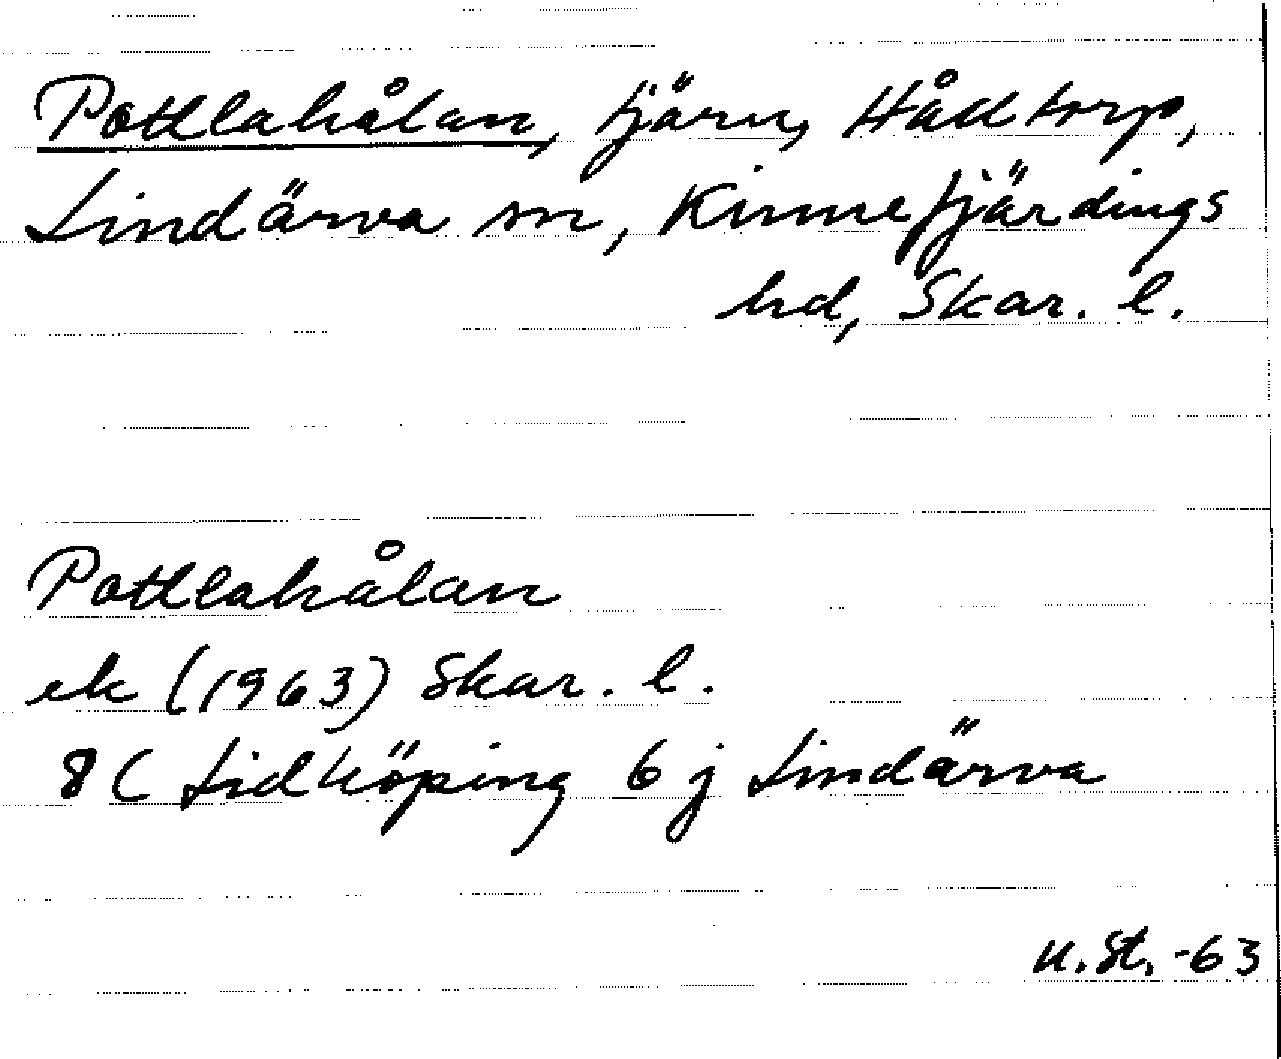 Pottlahålan, tjärn, Hådtorp,
Lindärva sn, Kinnefjärdings
hd, Skar. l.
Pottlahålan
ek (1963) Skar. l.
8C Lidköping 6 j Lindärva
U. St. -63